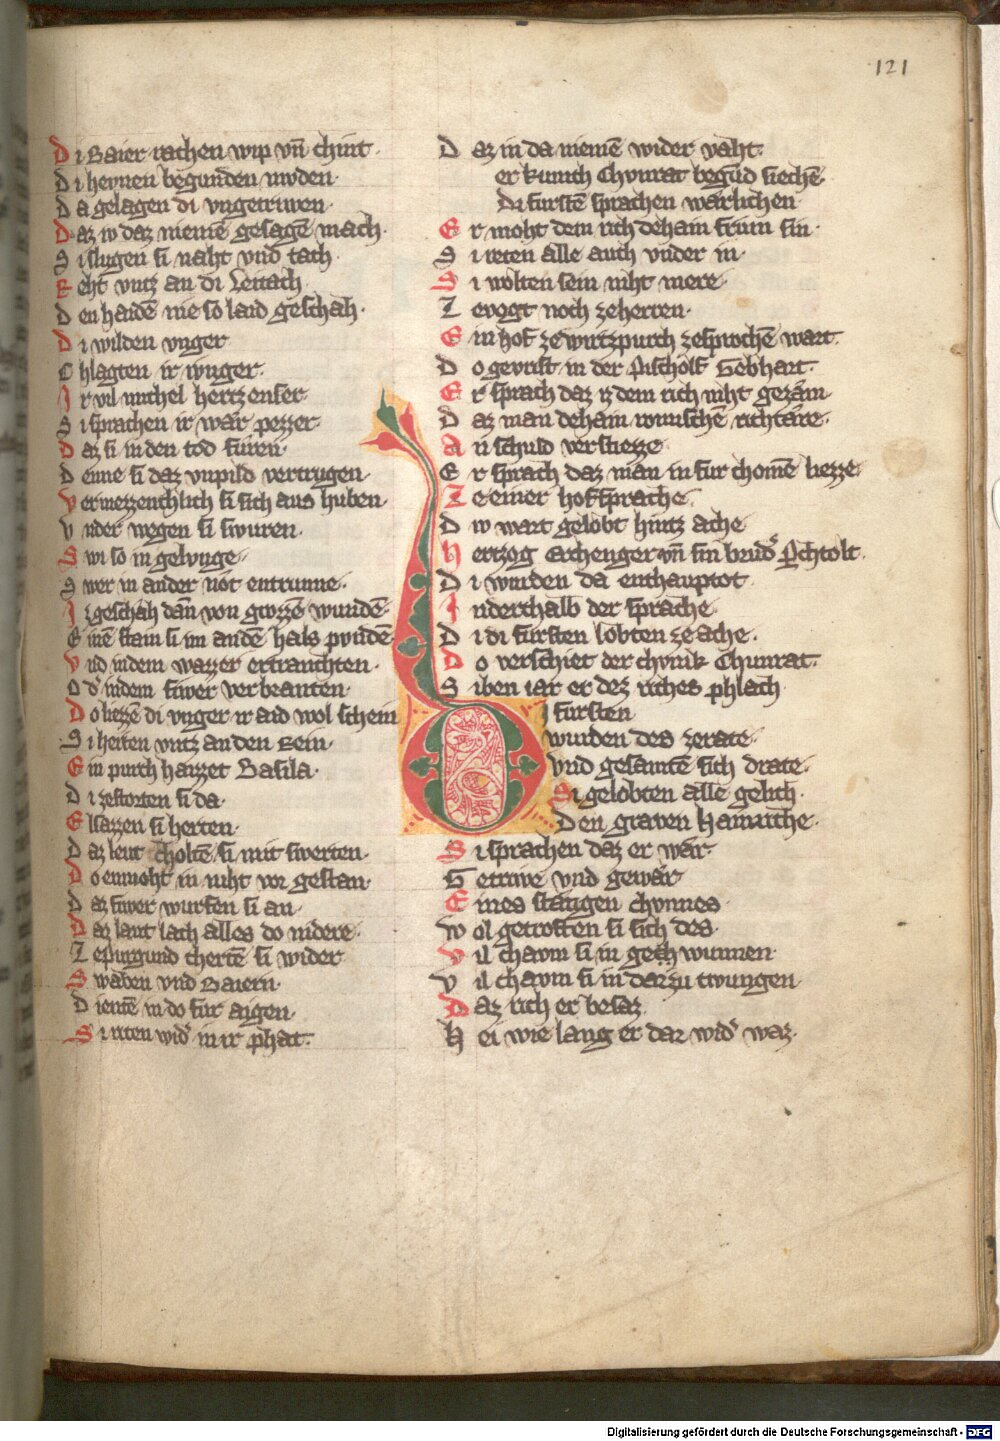 121
Di Baier rachen wip vn̄ chint·
Di heunen begunden muden·
Da gelagen di vngetriwen·
Daz iv daz niemē gesagē mach·
Si slugen si naht vnd tach·
Reht vntz an di Leitach·
Den haidē nie so laid geschah·
Di wilden vnger
Chlagten ir iunger·
Ir vil michel hertzenser·
Si sprachen ir wær pezzer·
Daz si in den tod füren·
Denne si daz vnpild vertrugen·
Vermezzenchlich si sich aus huben·
Vnder wegen si swuren·
Swi so in gelunge·
Swer in ander not entrunne·
Iz geschah dañ von grozzē wundē·
Einē stain si im an dē hals pundē
Vnd in dem wazzer ertranchten·
Od' in dem fiwer verbranten·
Do liezzē di vnger ir aid wol schein
Si herten vntz an den Rein·
Ein purch haizzet Basila·
Di zestorten si da·
Elsazzen si herten·
Daz leut choltē si mit swerten·
Do enmoht in niht vor gestan·
Daz fiwer wurfen si an·
Daz lant lach alles do nidere·
Zepurgund chertē si wider
Swaben vnd Baiern·
Di eintē in do fur aigen·
Si riten wid' in ir phat·
Daz in da niemē wider vaht·
er kunich Chunrat begūd siechē·
Di furstē sprachen wærlichen·
Er moht dem rich dehain frum sin·
Si reten alle auch vnder in·
Si wolten sein niht mere·
Ze vogt noch ze herren·
Ein hof ze wirtzpurch zesprochē wart·
Do gevrist in der Pischolf Gebhart·
Er sprach daz iz dem rich niht gezæm
Daz man dehain romischē richtære·
An schuld verstiezze·
Er sprach daz man in fur chomē liezze·
Ze einer hofsprache·
Div wart gelobt hintz ache
Hertzog Erchenger vn̄ sin brud' Perchtolt·
Di wurden da enthauptot·
Inderthalb der sprache·
Di di fursten lobten ze ache·
Do verschiet der chunik Chunrat·
Siben iar er dez riches phlach·
Di fursten
wurden des zerate·
Vnd gesamtē sich drate·
Si gelobten alle gelich·
Den graven Hainriche·
Si sprachen daz er wær
Getriwe vnd gewær
Eines stæigen chunnes
Wol getrosten si sich des·
Vil chaum si in gechwunnen
Vil chaum si in dar zu twungen·
Daz rich er besaz
Hei wie lang er dar wid' waz·
Digitalisierung gefördert durch die Deutsche Forschungsgemeinschaft - DFG